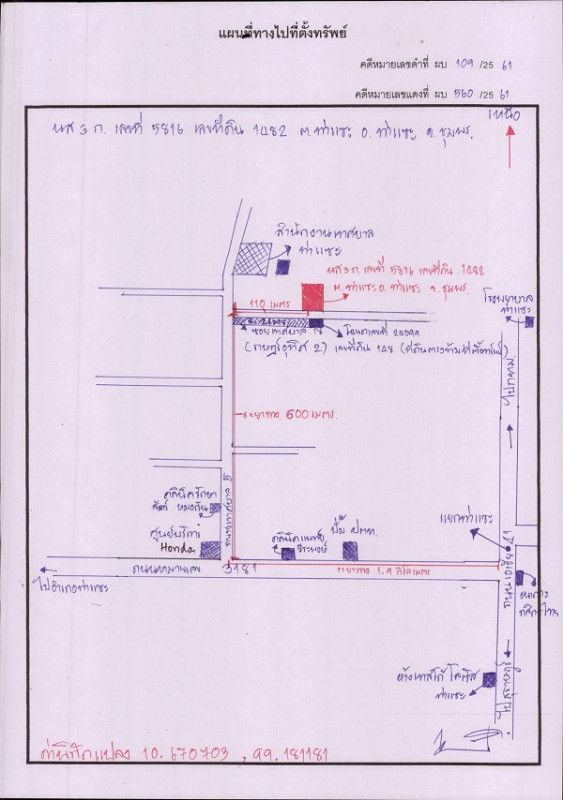 แผนที่ทางไปที่ตั้งทรัพย์
คดีหมายเลขดำที่ ผบ 109 /25 61
คดีหมายเลขแดงที่ ผบ 560 /25 61
นส 3 ก. เลขที่ 5816 เลขที่ดิน 1482 ต.ท่าแซะ อ.ท่าแซะ จ.ชุมพร.
เหนือ
สำนักงานเทศบาล
ท่าแซะ
นส3ก. เลขที่ 5816 เลขที่ดิน 1482
ต.ท่าแซะ อ.ท่าแซะ จ.ชุมพร.
110 เมตร
โรงพยาบาล
ท่าแซะ
ซอยเทศบาล
โฉนดเลขที่
(ราษฎร์อุทิศ 2) เลขที่ดิน 148
ไปกทม.
ระยะทาง 600 เมตร.
คลินิกรักษา
สัตว์
ถนนเทศบาล
ศูนย์บริการ
Honda
คลินิกแพทย์
ปั๊ม ปตท.
แยกท่าแซะ
ถนนเอเชีย 41
ถนนหมายเลข 3181
ระยะทาง 1.9 กิโลเมตร
ไปอำเภอท่าแซะ
ธนาคาร
กสิกรไทย
ห้างเทสโก้ โลตัส
ท่าแซะ
ไปสุราษฎร์
ค่าพิกัดแปลง 10.670703 , 99.181181